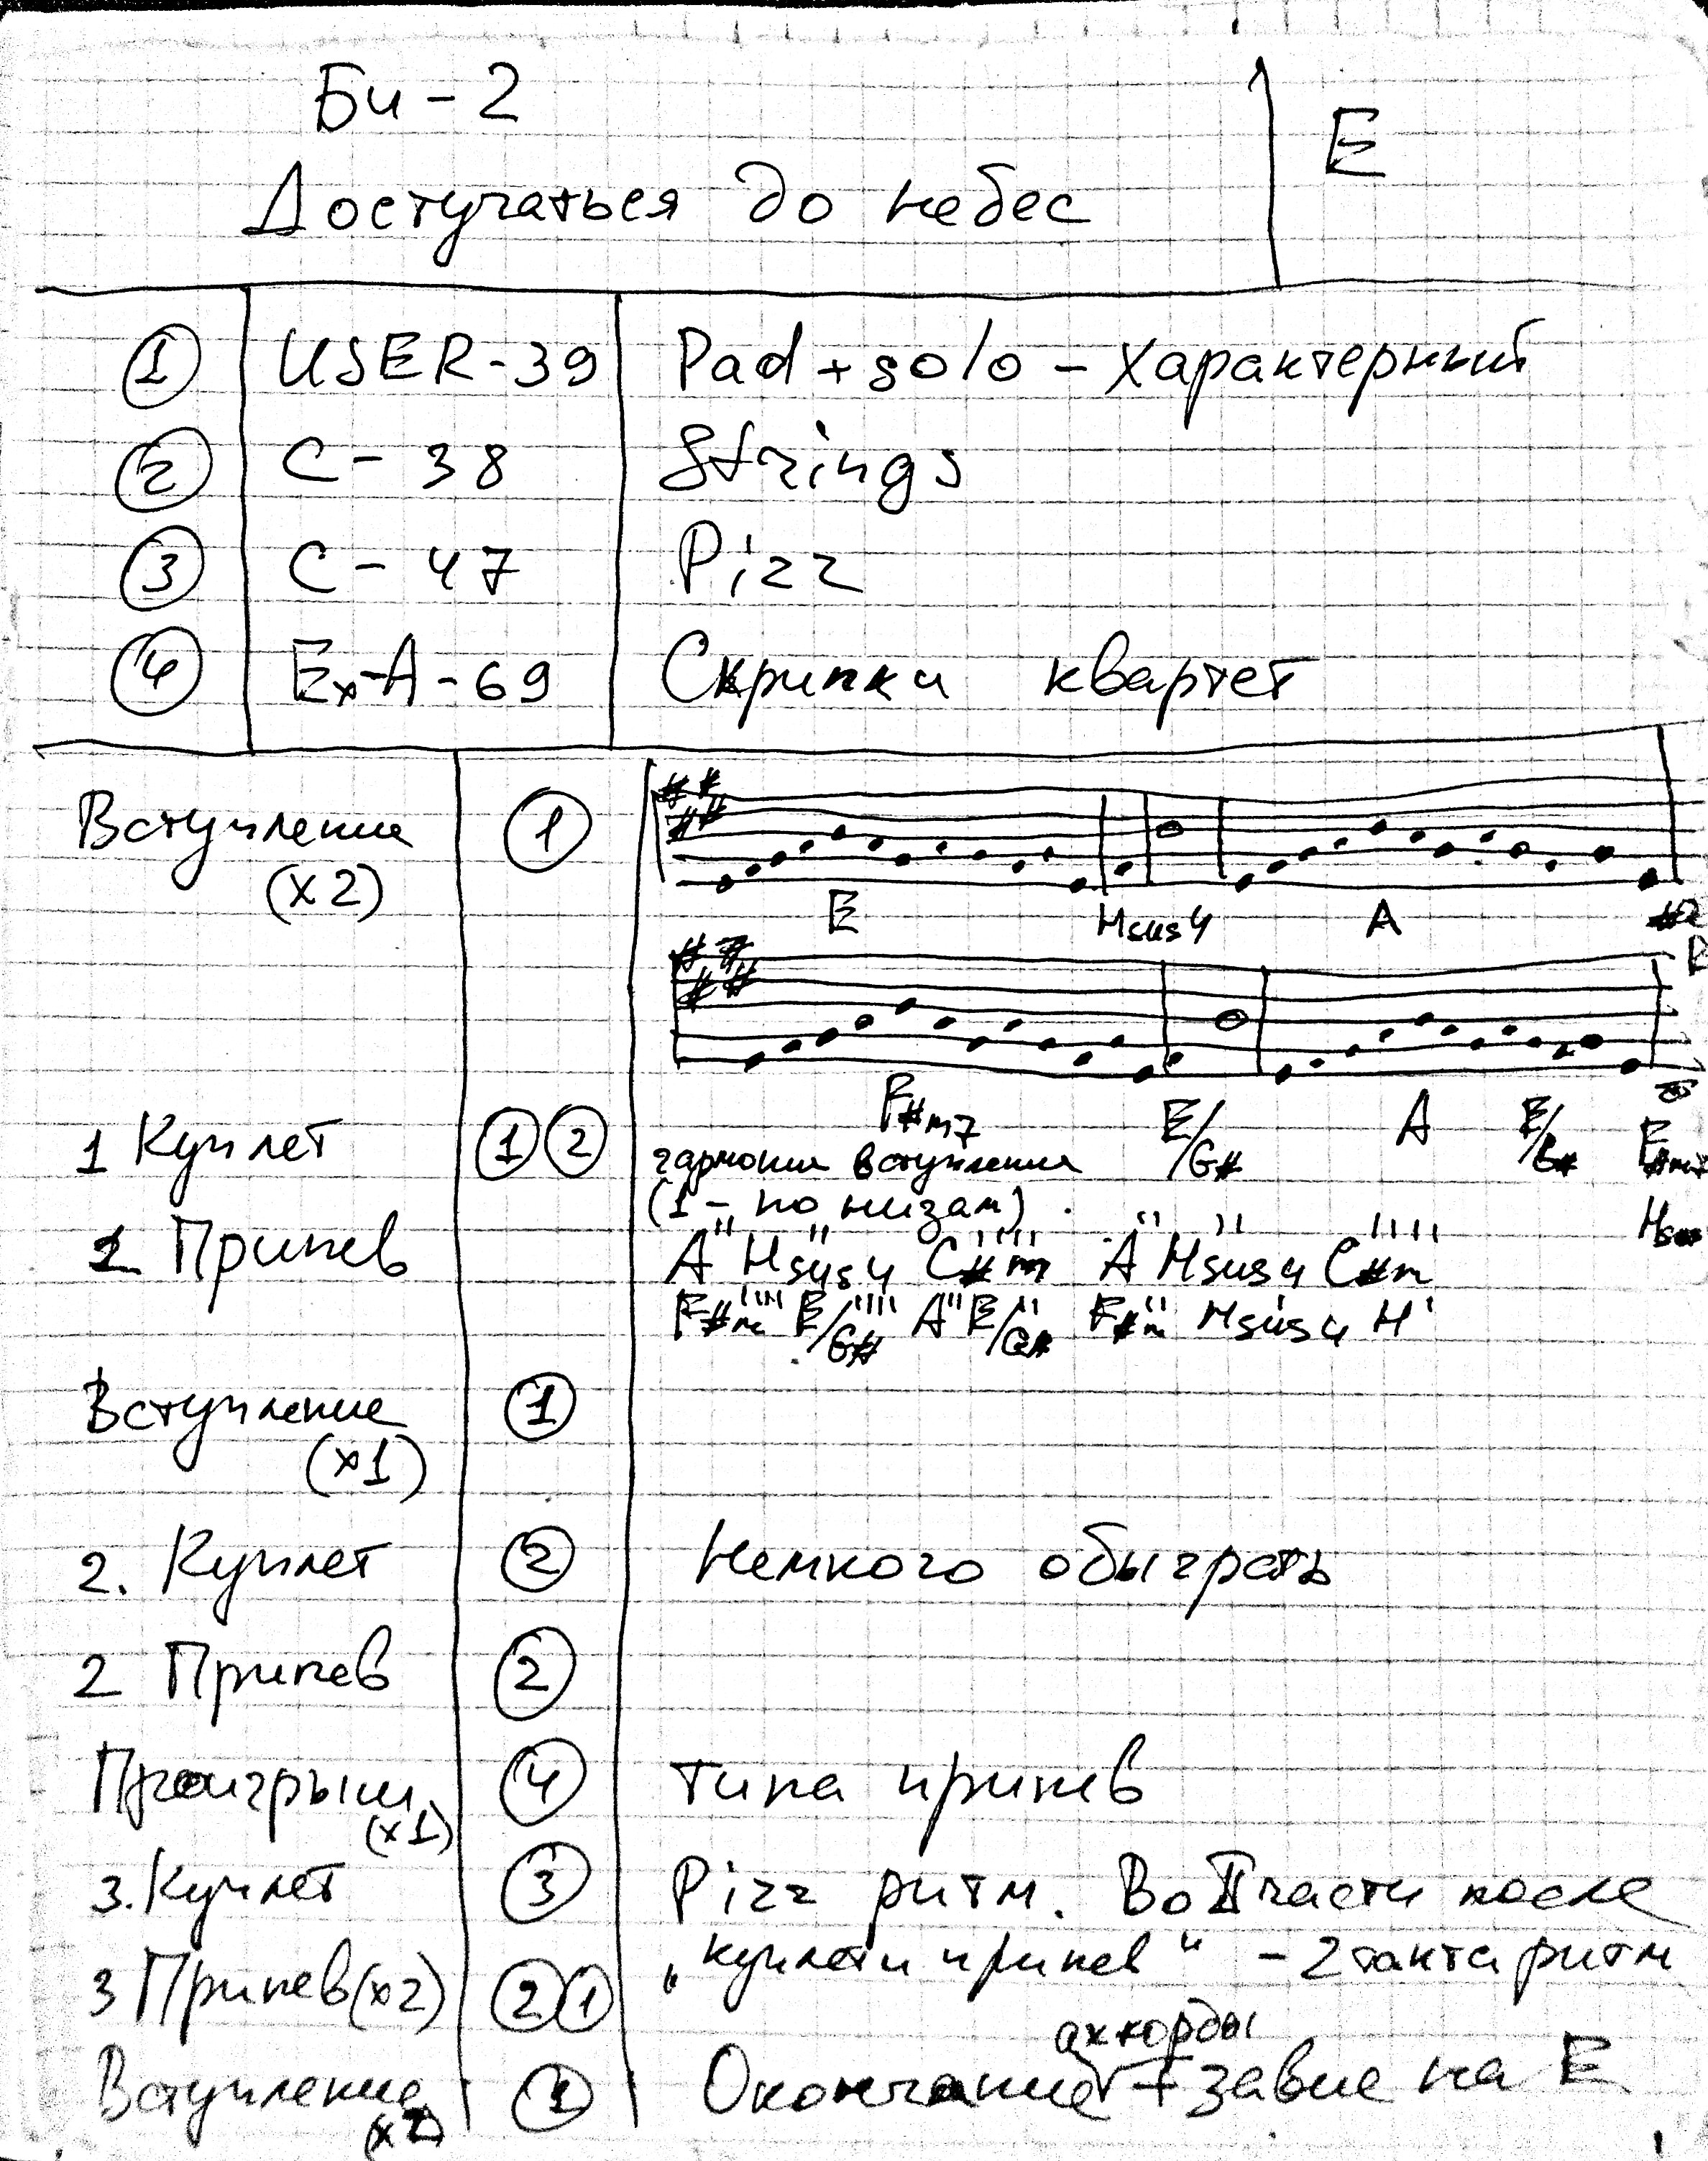 Би-2
E
Достучаться до небес
1 USER-39 Pad+solo - характерный
2 C-38 Strings
3 C-47 Pizz
4 Ex-A-69 Скрипки квартет
Вступление 1
(x2)
E Hsus4 A
F#m7 E/G# A E/G# F#m7
1 Куплет 1 2 гармония вступления
(1 - по низам)
1 Припев A Hsus4 C#m A Hsus4 C#m
F#m E/G# A E/G# F#m Hsus4 H
Вступление 1
(x1)
2. Куплет 2 Немного обыграть
2 Припев 2
Проигрыш 4 типа припев
(x1)
3. Куплет 3 Pizz ритм. Во II части после
"куплети припев" - 2 такта ритм
3 Припев (x2) 2 1
аккорды
Вступление 1 Окончание + завис на E
(x2)